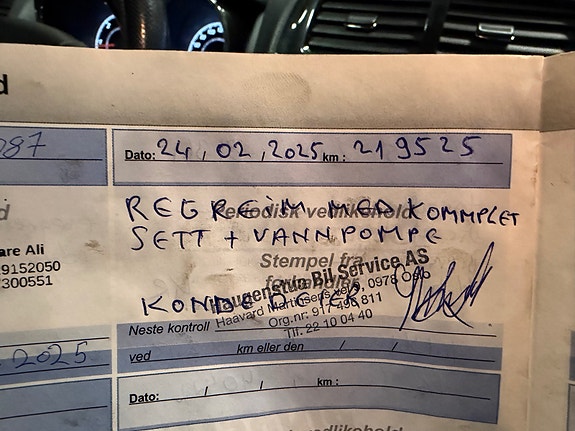 d
087
Dato: 24, 02, 2025 km: 219525
REGREIM MED KOMMPLET
Periodisk vedlikehold
SETT + VANNPOMPE
are Ali
9152050
300551
Stempel fra
Haugenstua Bil Service AS
Haavard Martinsens vei 9, 0978 Oslo
Org.nr: 917 496 811
Tlf. 22 10 04 40
Neste kontroll
.2025
ved km eller den / /
Dato: / / km: